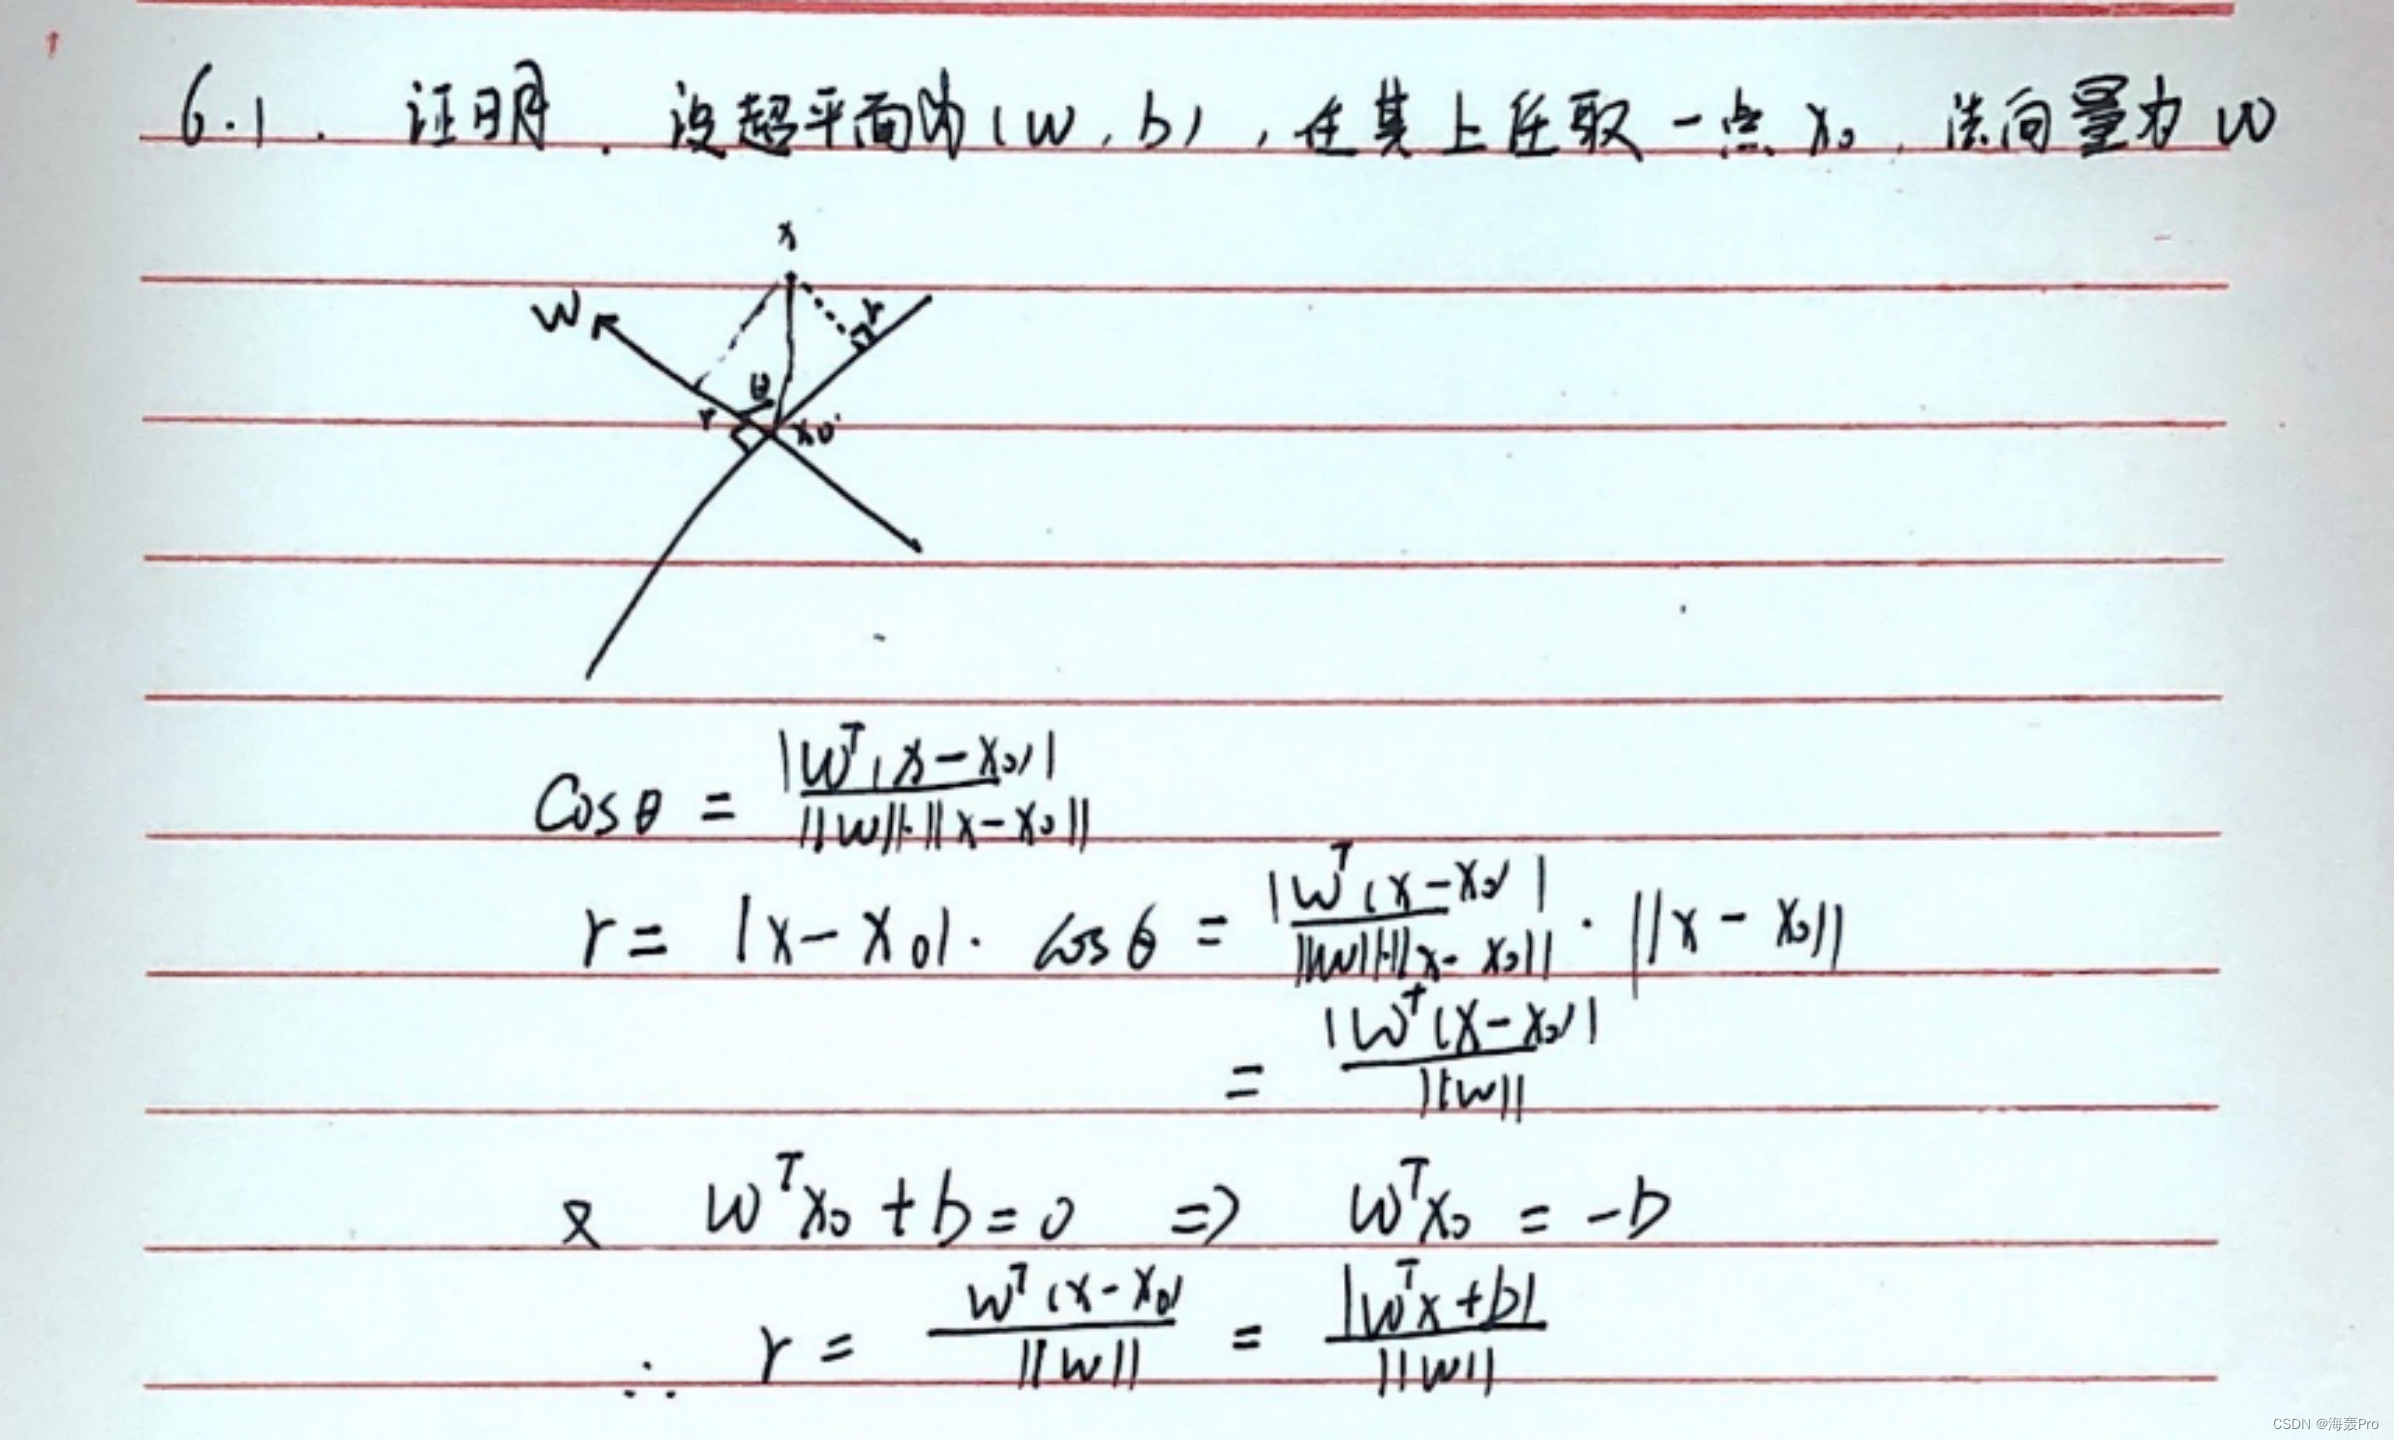 6.1. 证明. 设超平面为(w, b), 在其上任取一点 x₀, 法向量为 w
x
w
r
θ
r
x₀
Cosθ = |wᵀ(x-x₀)| / ||w||·||x-x₀||
r = |x-x₀|· cosθ = |wᵀ(x-x₀)| / ||w||·||x-x₀|| · ||x-x₀||
= |wᵀ(x-x₀)| / ||w||
又 wᵀx₀ + b = 0 => wᵀx₀ = -b
∴ r = wᵀ(x-x₀) / ||w|| = |wᵀx+b| / ||w||
CSDN @海轰Pro